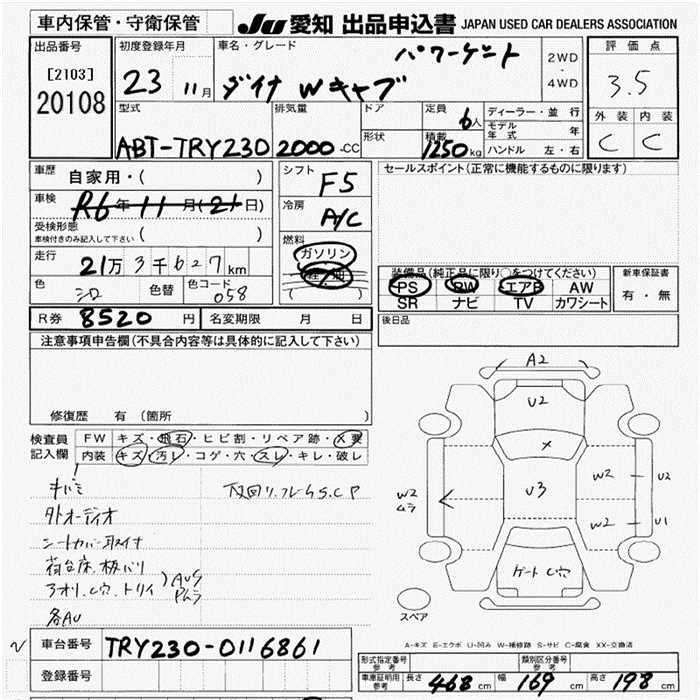 車内保管・守衛保管
JU 愛知 出品申込書 JAPAN USED CAR DEALERS ASSOCIATION
出品番号
[2103]
20108
初度登録年月
23 11月
車名・グレード
パワーゲート
ダイナ Wキャブ
2WD
・
4WD
評価点
3.5
外装 内装
C C
型式
ABT-TRY230
排気量
2000-CC
ドア
形状
定員
6人
積載
1250kg
ディーラー・並行
モデル年式 年
ハンドル 左・右
車歴
自家用・( )
車検
R6年11月(21日)
受検形態
車検付きのみ記入して下さい ( )
走行
21万3千627km
色
シロ
色替
色コード
058
シフト
F5
冷房
A/C
燃料
ガソリン
軽油
( )
セールスポイント(正常に機能するものに限ります)
装備品(純正品に限り○をつけてください)
PS PW エアB AW
SR ナビ TV カワシート
新車保証書
有・無
R券 8520円
名変期限 月 日
後日品
注意事項申告欄(不具合内容等は具体的に記入して下さい)
修復歴 有 (箇所 )
検査員記入欄
FW キズ・飛石・ヒビ割・リペア跡・X要
内装 キズ・汚レ・コゲ・穴・スレ・キレ・破レ
キバミ
下回リ.フレームS.C.P
外オーディオ
シートカバー取付
荷台床.板バリ
アオリ.C穴.トリイ
各AU
A2
U2
X
U3
W2
ムラ
W2
W2
U2
U1
ゲートC穴
スペア
A-キズ E-エクボ U-凹み W-補修跡 S-サビ C-腐食 XX-交換済
車台番号 TRY230-0116861
登録番号
形式指定番号
参考
類別区分番号
参考
車庫証明用
参考
長さ 468cm 幅 169cm 高さ 198cm